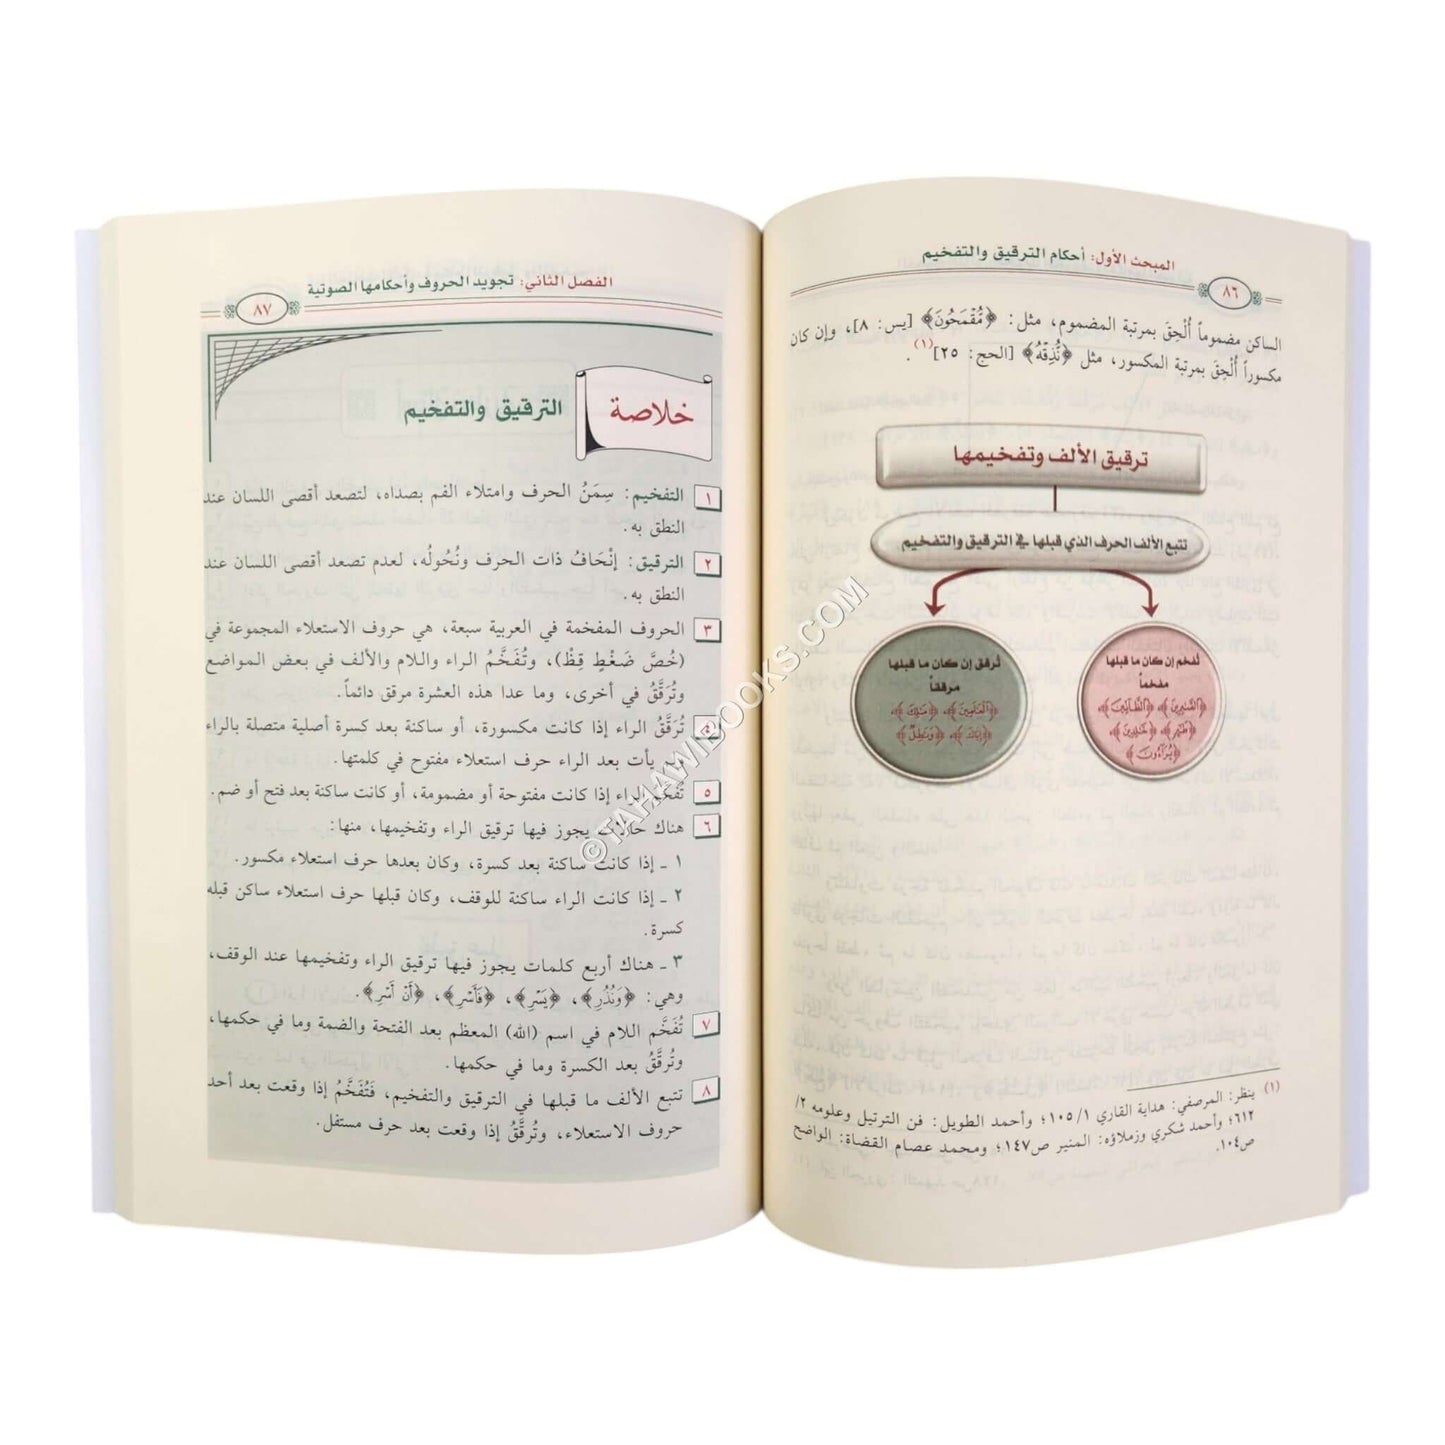 المبحث الأول: أحكام الترقيق والتفخيم
٨٦
الساكن مضموماً أُلْحِقَ بمرتبة المضموم، مثل: ﴿مُّقْمَحُونَ﴾ [يس: ٨]، وإن كان
مكسوراً أُلْحِقَ بمرتبة المكسور، مثل ﴿نُذِقْهُ﴾ [الحج: ٢٥](١).
ترقيق الألف وتفخيمها
تتبع الألف الحرف الذي قبلها في الترقيق والتفخيم
تُفخم إن كان ما قبلها
مفخماً
﴿الصَّٰبِرِينَ﴾، ﴿الظَّٰلِمِينَ﴾،
﴿خَٰلِدِينَ﴾
تُرقق إن كان ما قبلها
مرققاً
﴿الْعَٰلَمِينَ﴾، ﴿مَٰلِكِ﴾،
﴿إِيَّاكَ﴾
(١) ينظر: المرصفي: هداية القاري ١/ ١٠٥؛ وأحمد الطويل: فن الترتيل وعلومه ٢/
٦١٢؛ وأحمد شكري وزملاؤه: المنير ص١٤٧؛ ومحمد عصام القضاة: الواضح
ص١٠٤.
الفصل الثاني: تجويد الحروف وأحكامها الصوتية
٨٧
خلاصة
الترقيق والتفخيم
١ التفخيم: سِمَنُ الحرف وامتلاء الفم بصداه، لتصعد أقصى اللسان عند
النطق به.
٢ الترقيق: إنْحَافُ ذات الحرف ونُحُولُه، لعدم تصعد أقصى اللسان عند
النطق به.
٣ الحروف المفخمة في العربية سبعة، هي حروف الاستعلاء المجموعة في
(خُصَّ ضَغْطٍ قِظْ)، وتُفَخَّمُ الراء واللام والألف في بعض المواضع
وتُرَقَّقُ في أخرى، وما عدا هذه العشرة مرقق دائماً.
٤ تُرَقَّقُ الراء إذا كانت مكسورة، أو ساكنة بعد كسرة أصلية متصلة بالراء
يأت بعد الراء حرف استعلاء مفتوح في كلمتها.
٥ تُفَخَّم الراء إذا كانت مفتوحة أو مضمومة، أو كانت ساكنة بعد فتح أو ضم.
٦ هناك حالات يجوز فيها ترقيق الراء وتفخيمها، منها:
١ ـ إذا كانت ساكنة بعد كسرة، وكان بعدها حرف استعلاء مكسور.
٢ ـ إذا كانت الراء ساكنة للوقف، وكان قبلها حرف استعلاء ساكن قبله
كسرة.
٣ ـ هناك أربع كلمات يجوز فيها ترقيق الراء وتفخيمها عند الوقف،
وهي: ﴿وَنُذُرِ﴾، ﴿يَسْرِ﴾، ﴿فَأَسْرِ﴾، ﴿أَنْ أَسْرِ﴾.
٧ تُفَخَّم اللام في اسم (الله) المعظم بعد الفتحة والضمة وما في حكمها،
وتُرقَّقُ بعد الكسرة وما في حكمها.
٨ تتبع الألف ما قبلها في الترقيق والتفخيم، فَتُفَخَّمُ إذا وقعت بعد أحد
حروف الاستعلاء، وتُرقَّقُ إذا وقعت بعد حرف مستفل.
©TAHAWIBOOKS.COM